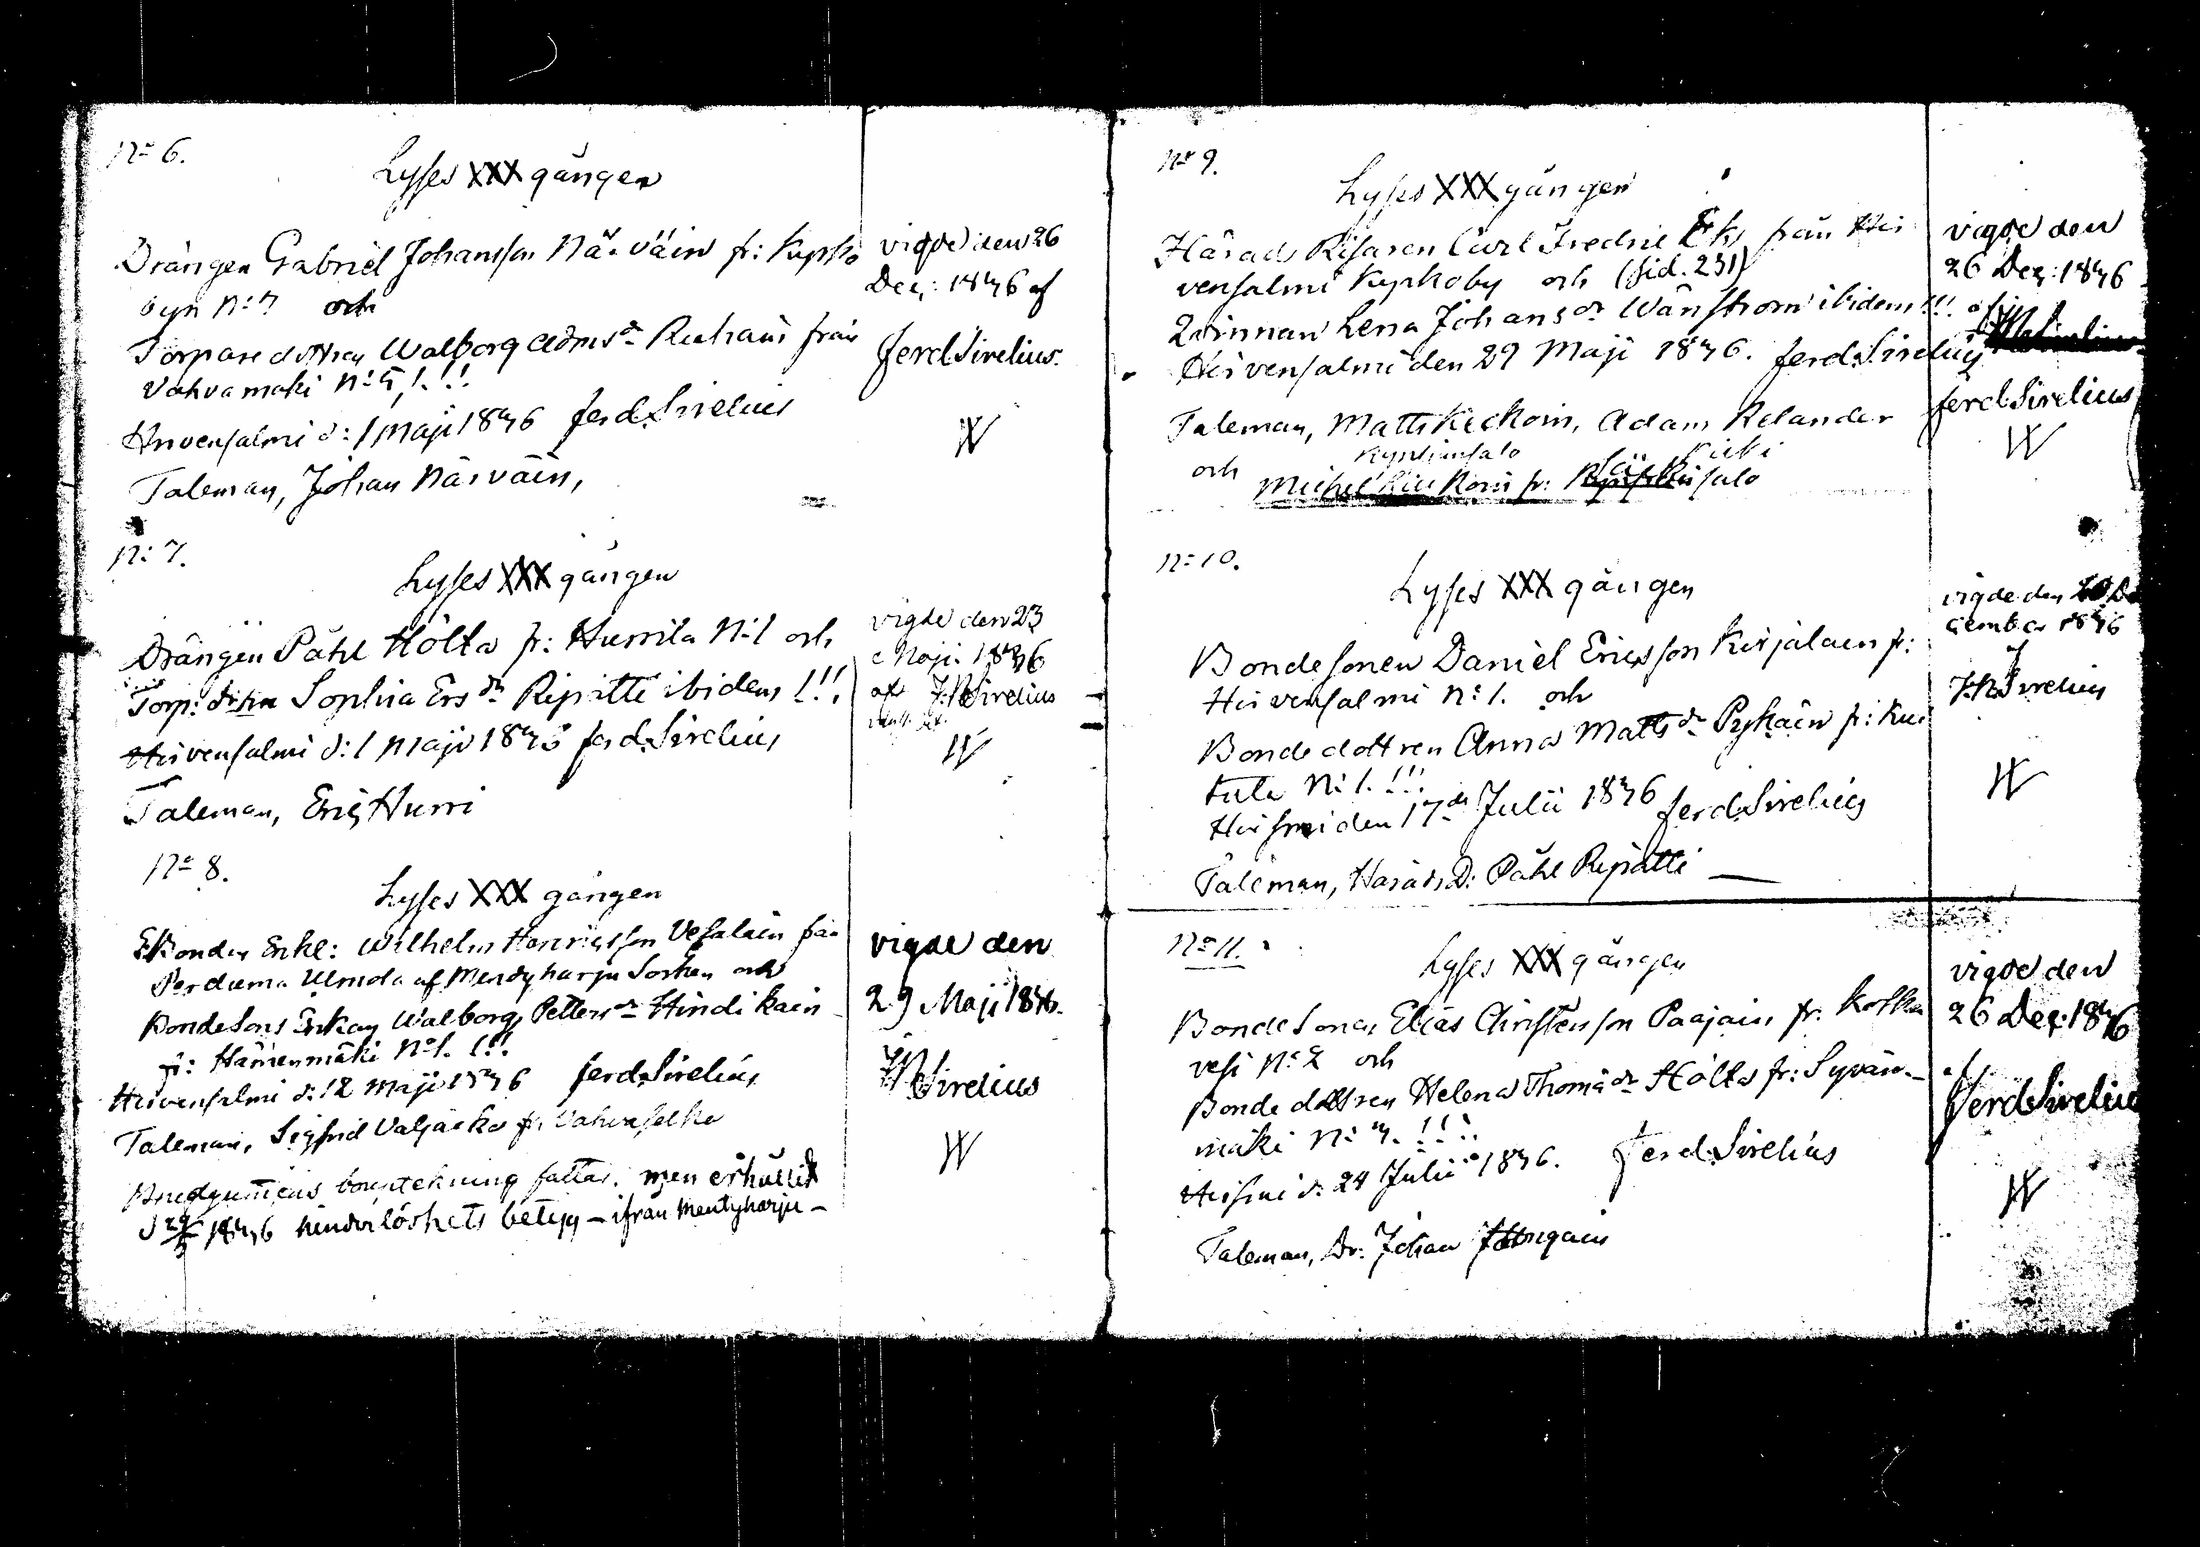 No 6.
Lyses XXX gången
Drängen Gabriel Johansson Närväin fr: Kyrko
byn No 7 och
Torpare dottren Walborg Adms dr Ruhain från
Vahvamäki No 5, !.!!
Hirvensalmi d: 1 Maji 1846 Ferd. Sirelius
Taleman, Johan Närväin,
vigde den 26
Dec: 1846 af
Ferd Sirelius.
W
No 7.
Lyses XXX gången
Drängen Påhl Hölta fr: Hurrila No 1 och
Torp: dottren Sophia Ers dr Ripatti ibidem !!!
Hirvensalmi d: 1 Maji 1846 Ferd. Sirelius
Taleman, Eric Hurri
vigde den 23
Maji. 1846
af Sirelius
W
No 8.
Lyses XXX gången
Bonden Enkl: Wilhelm Henricsson Vesalain från
af Mendyharju Socken och
Bondesons Enkan Walborg Petters dr Hindikain
fr: Hämenmäki No 1. !!!
Hirvensalmi d: 12 Maji 1846 Ferd. Sirelius
Taleman, Sigfrid Valjacka fr: Vahvaselkä
Brudgummens fattas. men erhållit
d 29/5 1846 hinderlöshets betyg – ifrån Mentyharju –
vigde den
29 Maji 1846.
Sirelius
W
No 9.
Lyses XXX gången
Härads Skrifvaren Carl Fredric Ek, från Hir
vensalmi Kyrkoby och (sid. 231)
Qvinnan Lena Johans dr Wänström ibidem !!!
Hirvensalmi den 29 Maji 1846. Ferd. Sirelius
Taleman, Matts Kickoin, Adam Relander
och
vigde den
26 Dec: 1846
af
Ferd Sirelius
W
No 10.
Lyses XXX gången
Bondesonen Daniel Ericsson Kirjalain fr:
Hirvensalmi No 1. och
Bondedottren Anna Matts dr Pyhäin fr: Kui
tula No 1. !!!
Hirfmi den 17de Julii 1846 Ferd. Sirelius
Taleman, Härads D: Påhl Ripatti —
vigde den De
cember 1846
Sirelius
W
No 11.
Lyses XXX gången
Bondesonen Elias Christensson Paajain fr: Koska
vesi No 2 och
Bondedottren Helena Thomæ dr Hölta fr: Syvän-
mäki No 4. !!!
Hirfmi d: 24 Julii 1846. Ferd. Sirelius
Taleman, Dr: Johan
vigde den
26 Dec. 1846
af
Ferd Sirelius
W